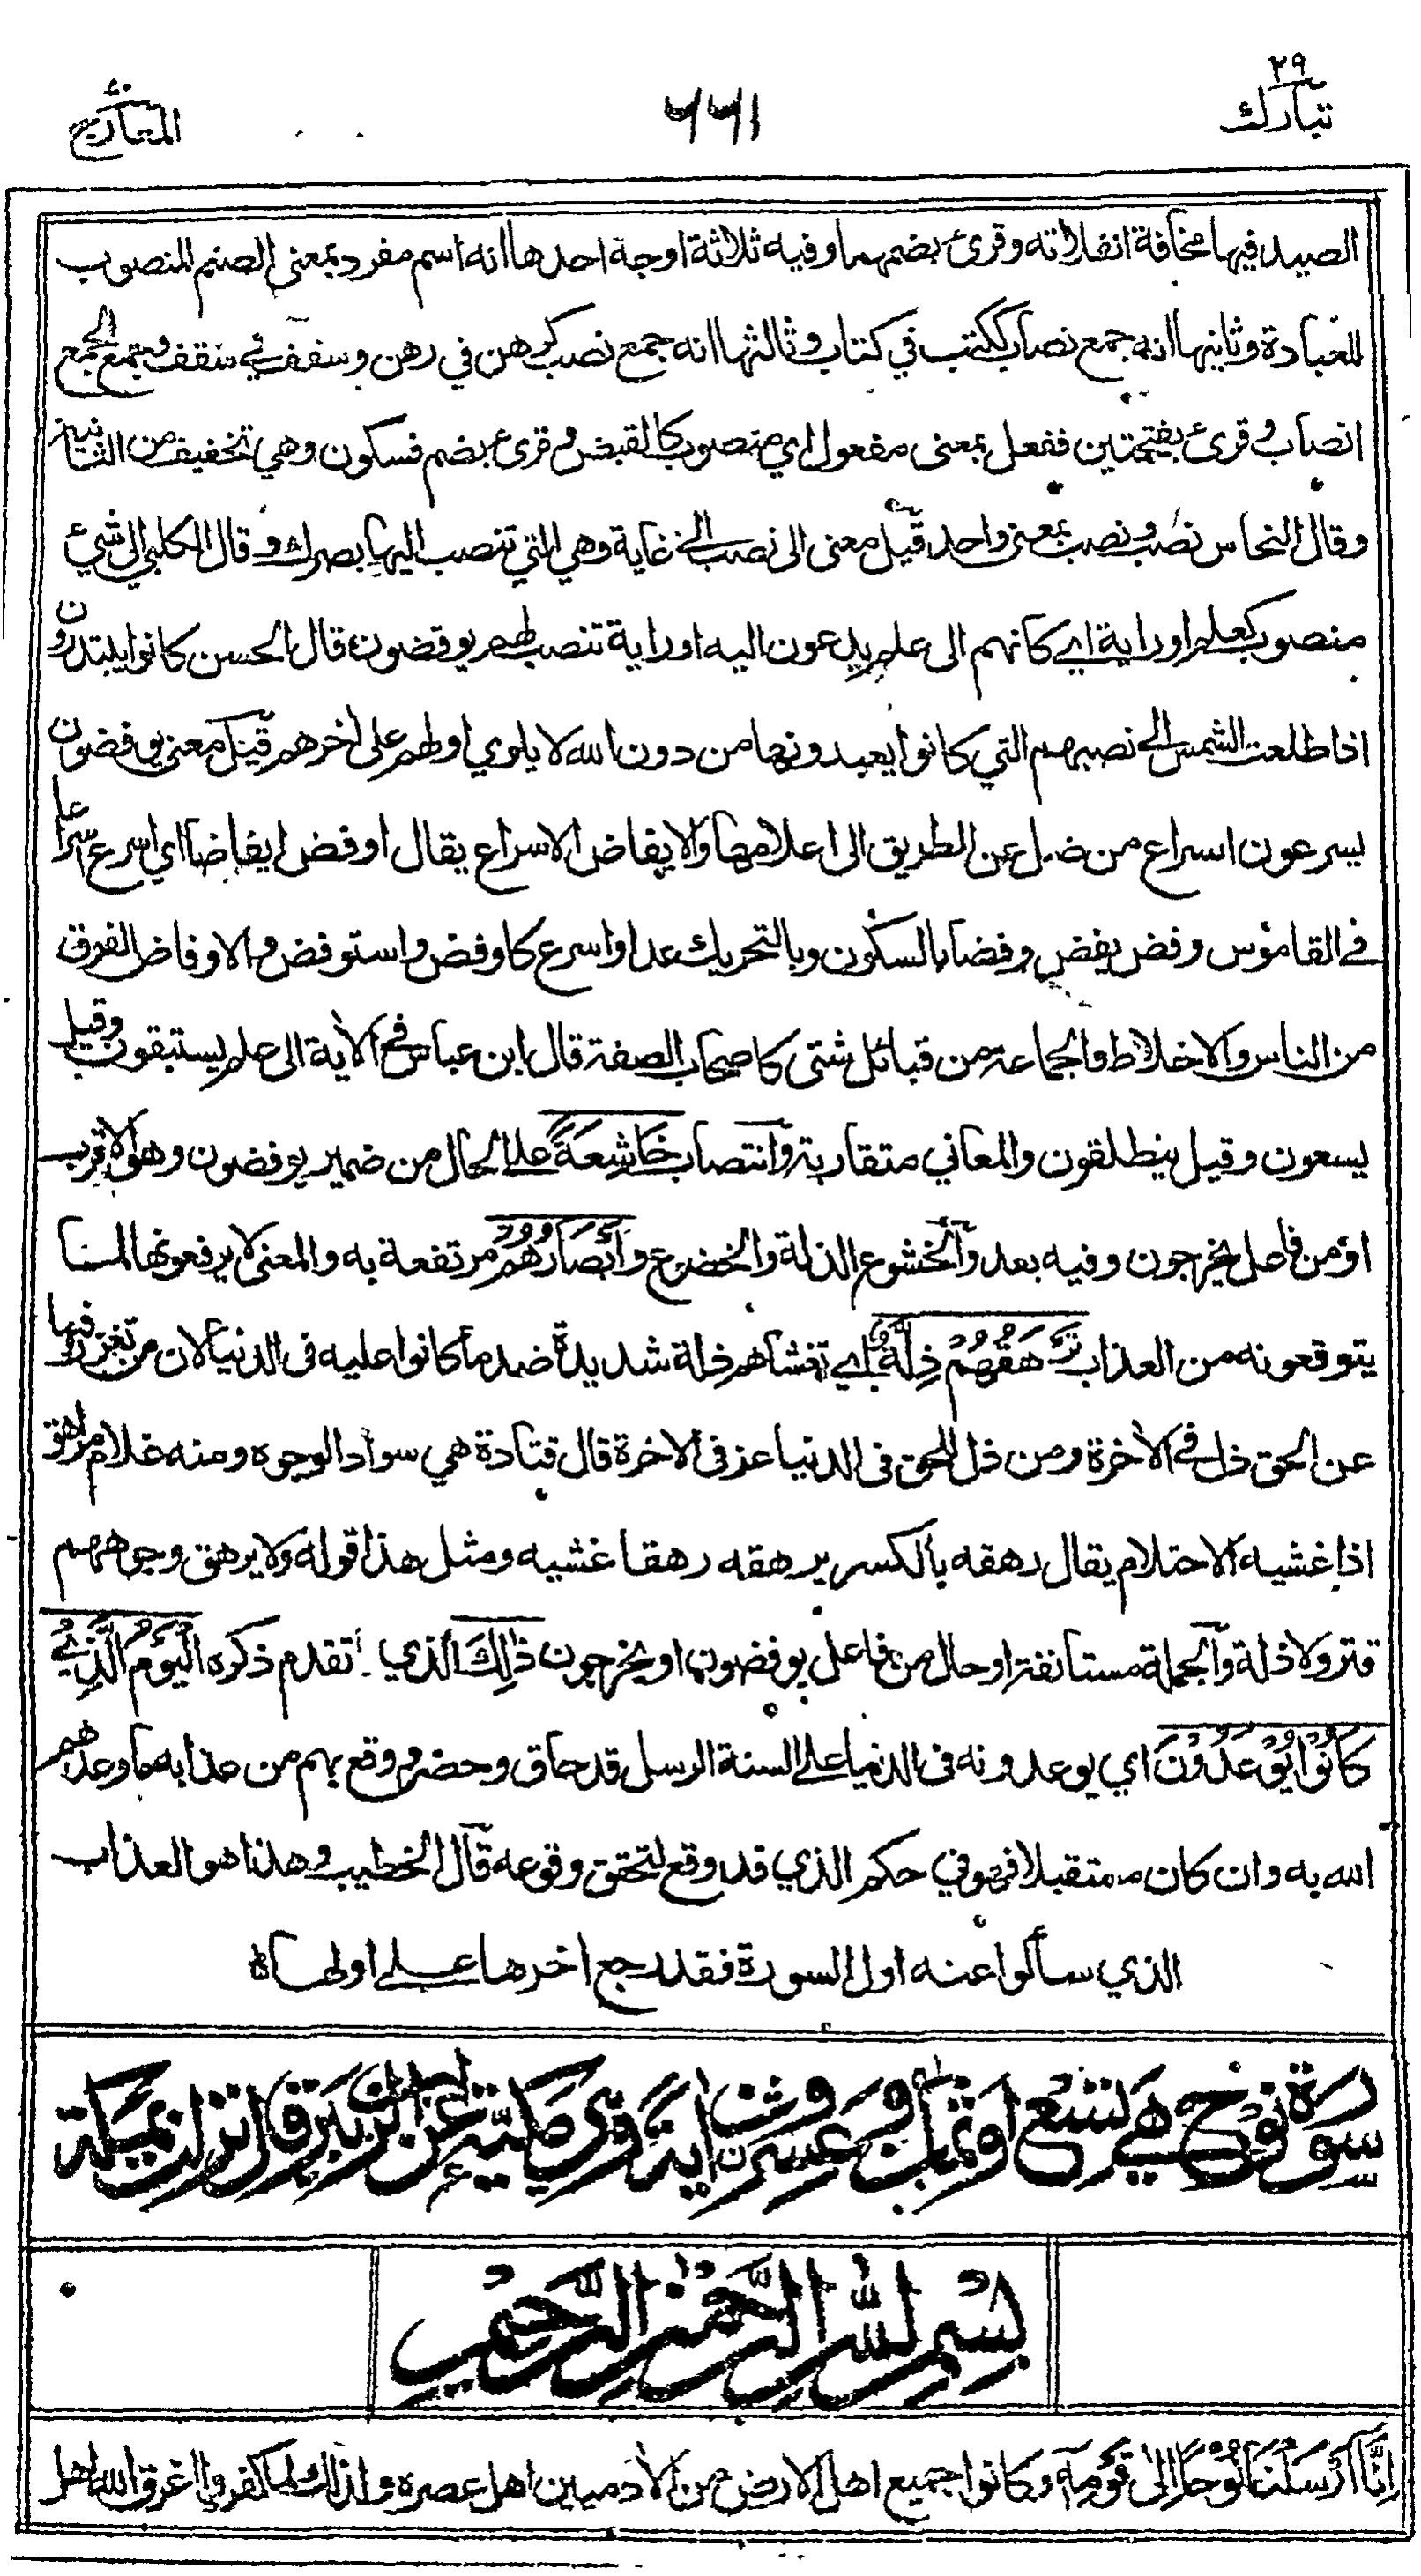 ٢٩
تبارك
٧٠
المعارج
الصيد فيها مخافة انفلاته وقرئ بضمهما وفيه ثلاثة اوجه احدها انه اسم مفرد بمعنى الصنم المنصوب
للعبادة وثانيها انه جمع نصاب ككتب في كتاب وثالثها انه جمع نصب كرهن في رهن وسقف في سقف وجمع الجمع
انصاب وقرئ بفتحتين ففعل بمعنى مفعول اي منصوب كالقبض وقرئ بضم فسكون وهي تخفيف من الثانية
وقال النحاس نصب ونصب بمعنى واحد قيل معنى الى نصب الى غاية وهي التي تنصب اليها بصرك وقال الكلبي الى شيئ
منصوب كعلم او راية اي كانهم الى علم يدعون اليه او راية تنصب لهم يوفضون قال الحسن كانوا يبتدرون
اذا طلعت الشمس الى نصبهم التي كانوا يعبدونها من دون الله لا يلوي اولهم على اخرهم قيل معنى يوفضون
يسرعون اسراع من ضل عن الطريق الى اعلامها والايفاض الاسراع يقال اوفض ايفاضا اي اسرع اسراعا
في القاموس وفض يفض وفضا بالسكون وبالتحريك عدا واسرع كاوفض واستوفض والاوفاض الفرق
من الناس والاخلاط والجماعة من قبائل شتى كاصحاب الصفة قال ابن عباس في الاية الى علم يستبقون وقيل
يسعون وقيل ينطلقون والمعاني متقاربة وانتصاب خَاشِعَةً على الحال من ضمير يوفضون وهو الاقرب
او من فاعل يخرجون وفيه بعد والخشوع الذلة والخضوع وأَبْصَارُهُمْ مرتفعة به والمعنى لا يرفعونها لما
يتوقعونه من العذاب تَرْهَقُهُمْ ذِلَّةٌ اي تغشاهم ذلة شديدة ضد ما كانوا عليه في الدنيا لان من تعزز فيها
عن الحق ذل في الاخرة ومن ذل للحق في الدنيا عز في الاخرة قال قتادة هي سواد الوجوه ومنه غلام مراهق
اذا غشيه الاحتلام يقال رهقه بالكسر يرهقه رهقا غشيه ومثل هذا قوله ولا يرهق وجوههم
قتر ولا ذلة والجملة مستانفة او حال من فاعل يوفضون او يخرجون ذٰلِكَ الذي تقدم ذكره الْيَوْمُ الَّذِيْ
كَانُوْا يُوْعَدُوْنَ اي يوعدونه في الدنيا على السنة الرسل قد حاق وحضر ووقع بهم من عذابه ما وعدهم
الله به وان كان مستقبلا فهو في حكم الذي قد وقع لتحقق وقوعه قال الخطيب وهذا هو العذاب
الذي سألوا عنه اول السورة فقد رجع اخرها على اولها
سورة نوح هي تسع او ثمان وعشرون اية وهي مكية عن ابن الزبير قال نزلت بمكة
بسم الله الرحمن الرحيم
اِنَّا اَرْسَلْنَا نُوْحًا اِلٰى قَوْمِهٖ وكانوا جميع اهل الارض من الادميين اهل عصره ولذلك لما كفروا اغرق الله اهل